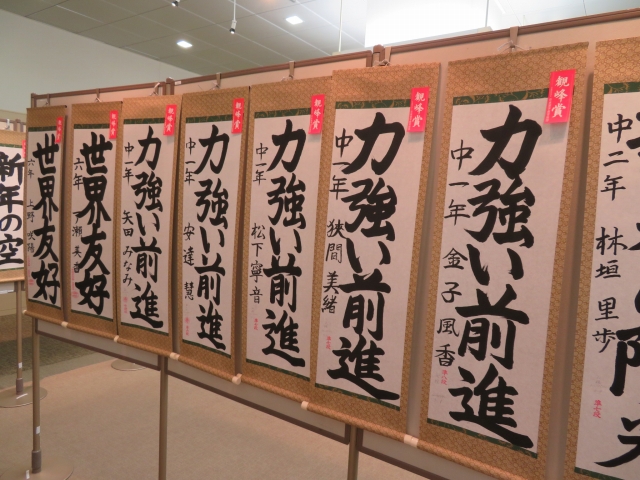 新年の空
世界友好
六年
上野
世界友好
六年
観峰賞
力強い前進
中一年
矢田みなみ
観峰賞
力強い前進
中一年
安達慧
観峰賞
力強い前進
中一年
松下寧音
観峰賞
力強い前進
中一年
狭間美緒
観峰賞
力強い前進
中一年
金子風香
観峰賞
中二年
林垣里歩